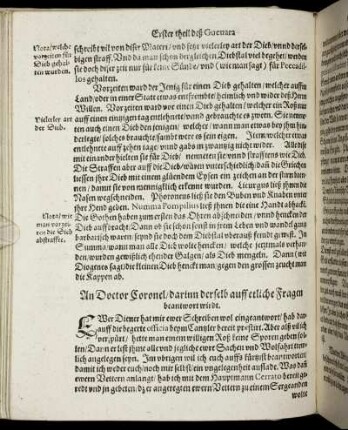 Erster theil deß Guevara
Nota/welche
vorzeiten für
Dieb gehal-
ten wurden.
schreibt vil von diser Materi/ und setzt vielerley art der Dieb/ unnd derselbigen
straff. Und da man schon dergleichen Diebstal viel begehet/ werden
sie doch diser zeit nur für letze Sünde/ und (wie man sagt) für Peccadillos
gehalten.
Vorzeiten ward der Jenig für einen Dieb gehalten/ welcher auff
Land/ oder in einer Statt etwas entfrembdt/ heimlich und wider deß Herrn
Willen. Vorzeiten ward vor einen Dieb gehalten/ welcher ein Roß
auff einen einigen tag entlehnte/ unnd gebrauchte es zween.
Vilerley art
der Dieb.
ten auch einen Dieb den jenigen/ welcher/ wann man etwas bey ihm hinderlegte/
solches brauchte sambt were es sein eigen. Item/ welcher etwas
entlehnte auff zehen tage/ und gabs in zwantzig nicht wider.
mit einander hielten sie für Dieb/
Die Straffen aber auff die Dieb/ waren unterschiedlich
liessen ihre Dieb mit einem glüendem Eysen ein zeichen an der stirn brennen/
damit sie von menniglich erkennt wurden. Licurgus ließ ihnen die
Nasen wegschneiden. Phoroneus ließ
Hend geben. Numma Pompilius ließ ihnen die eine Handt abhackt.
Nota/ wie
man vorzei-
ten die Dieb
abstraffte.
Die Gothen haben zum ersten das Ohren abschneiden/ unnd hencken der
Dieb auffbracht/ Dann ob sie schon sonst in jrem Leben und wandel gantz
barbarisch waren/ seynd sie doch dem Diebstal uberauß feindt gewest. In
Summa/ wann man alle Dieb wolte hencken/ welche jetzmals verhanden/
wurden es gewißlich ehender Galgen/ als Dieb mengeln. Dann (wie
Diogenes sagt) die kleinen Dieb henckt man/ gegen den grossen zeucht man
die Kappen ab.
An Doctor Coronel/ darinn derselb auff etliche Fragen
beantwort wirdt.
EWer Diener hat mir ewer Schreiben wol eingeantwort/ hab darauff
die begerte officia beym Cantzler bereit præstirt. Aber
hette man einem willigen Roß keine Sporen geben sollen/
Dann er leßt ihme all und jegliche ewer Sachen und Wolfahrt trewlich
angelegen seyn. Im ubrigen wil ich euch auffs fürtzist beantworten/
damit ich weder euch/ noch mir selbst/ ein ungelegenheit aufflade. Was den
ewern Vettern anlangt/ hab ich mit dem Hauptmann Cerrato bereit geredt
und jn gebeten/ dz er angeregten ewern Vettern zu einem Sergeanden
wolte